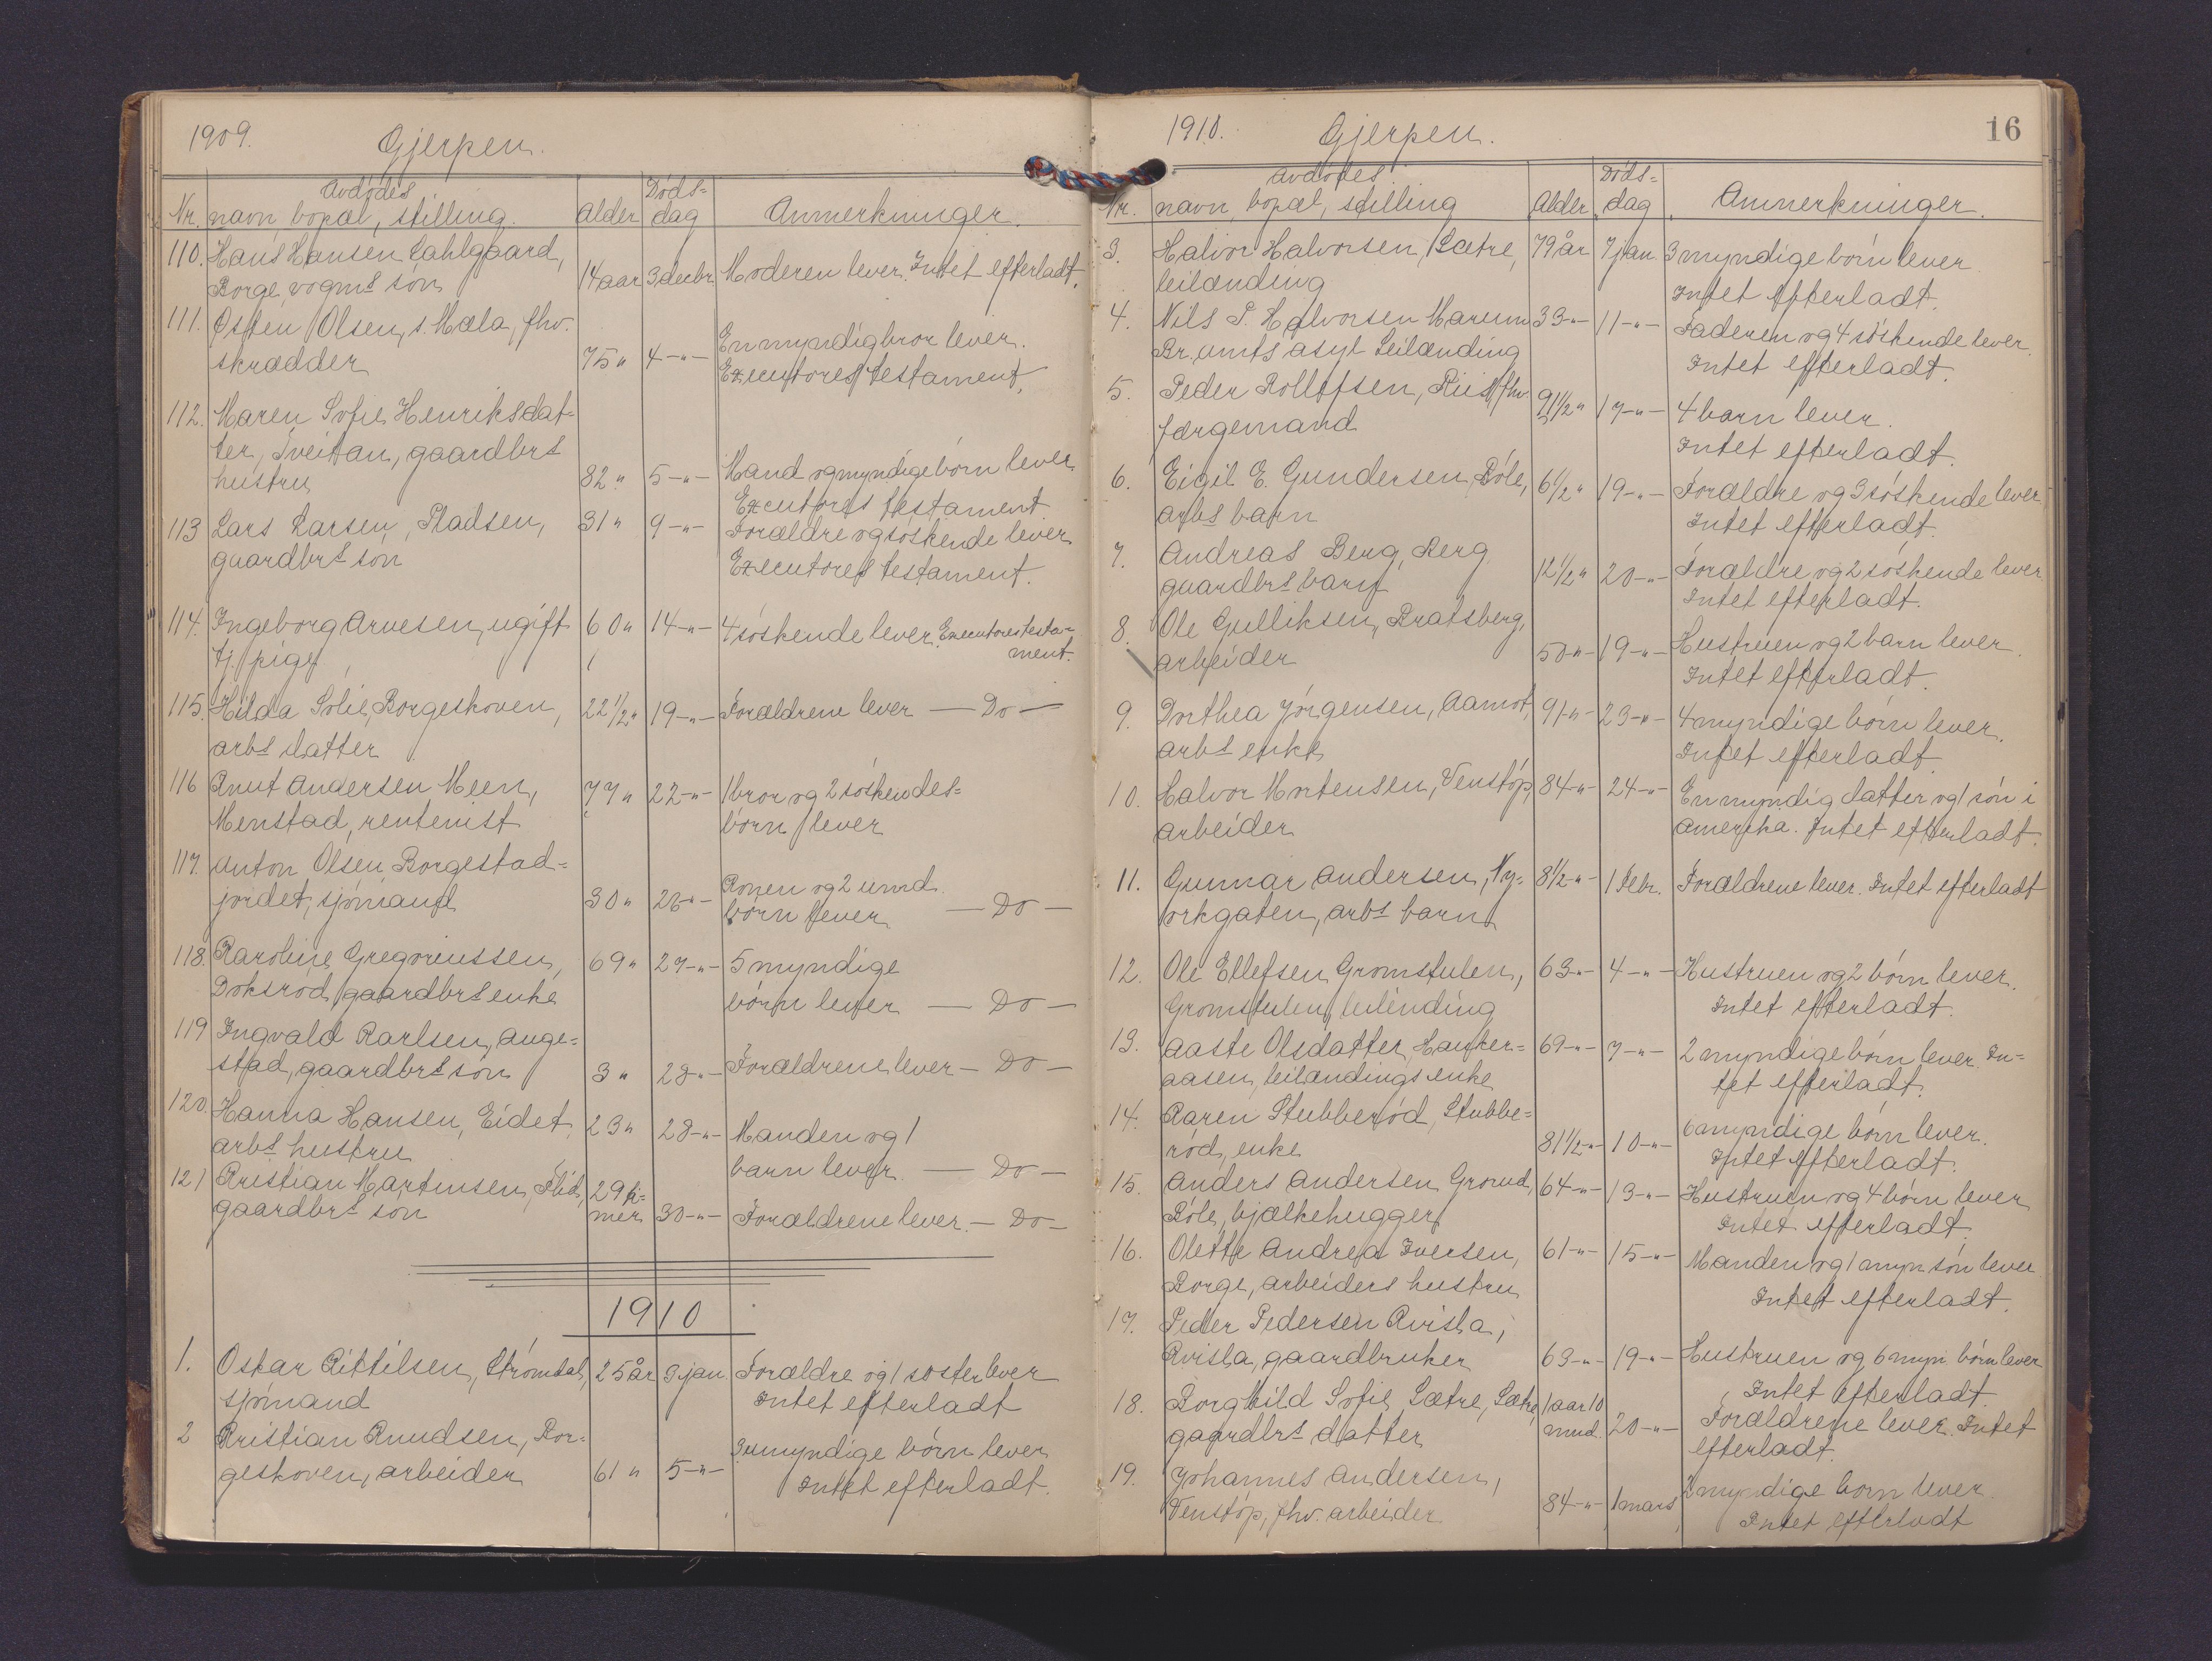 1909. Gjerpen.
Avdødes Døds=
Nr. navn, bopæl, stilling. Alder dag Anmerkninger.
110. Hans Hansen Dahlgaard,
Borge, vogms søn 14 aar 3 decbr. Moderen lever. Intet efterladt.
111. Østen Olsen, s. Mæla, fhv.
skrædder 75 " 4 -"- En myndig bror lever.
Executores testament.
112. Maren Sofie Henriksdat-
ter, Tveitan, gaardbrs
hustru 82 " 5 -"- Mand og myndige børn lever
Executores testament
113 Lars Larsen, Pladsen, 31 " 9 -"- Forældre og søskende lever
gaardbrs søn Executores testament.
114. Ingeborg Arvesen, ugift 60 " 14 -"- 4 søskende lever. Executores testa-
tj. pige ment.
115. Hilda Solie, Borgeskoven, 22 1/2 " 19 -"- Forældrene lever — Do —
arbs datter
116 Knut Andersen Meen, 77 " 22 -"- 1 bror og 2 søskendes=
Menstad, rentenist børn lever
117. Anton Olsen, Borgestad=
jordet, sjømand 30 " 26 -"- Konen og 2 umd.
børn lever — Do —
118. Karoline Gregoriussen, 69 " 27 -"- 5 myndige
Doksrød, gaardbrs enke børn lever — Do —
119 Ingvald Karlsen, Auge=
stad, gaardbrs søn 3 " 28 -"- Forældrene lever — Do —
120. Hanna Hansen, Eidet, 23 " 28 -"- Manden og 1
arbs hustru barn lever — Do —
121 Kristian Martinsen, Flid, 29 ti=
gaardbrs søn mer 30 -"- Forældrene lever. — Do —
1910
1. Oskar Kittilsen, Strømdal, 25 år 3 jan Forældre og 1 søster lever
sjømand Intet efterladt
2 Kristian Knudsen, Bor=
geskoven, arbeider 61 " 5 -"- 3 umyndige børn lever
Intet efterladt.
1910. Gjerpen. 16
Avdødes Døds=
Nr. navn, bopæl, stilling Alder dag. Anmerkninger.
3. Halvor Halvorsen, Sætre, 79 år 7 jan 3 myndige børn lever
leilænding Intet efterladt.
4. Nils P. Halvorsen Marum 33 -"- 11 -"- Faderen og 4 søskende lever.
Br. amts asyl Leilænding Intet efterladt.
5. Peder Rollefsen, Riis, fhv.
færgemand 91 1/2 " 17 -"- 4 barn lever.
Intet efterladt.
6. Eigil E. Gundersen, Bøle, 6 1/2 " 19 -"- Forældre og 3 søskende lever
arbs barn Intet efterladt.
7. Andreas Berg, Berg
gaardbrs barn 12 1/2 " 20 -"- Forældre og 2 søskende lever
Intet efterladt.
8. Ole Gulliksen, Bratsberg,
arbeider 50 -"- 19 -"- Hustruen og 2 barn lever.
Intet efterladt.
9. Dorthea Jørgensen, Aamot, 91 -"- 23 -"- 4 myndige børn lever.
arbs enke Intet efterladt.
10. Halvor Mortensen, Venstøp, 84 -"- 24 -"- En myndig datter og 1 søn i
arbeider Amerika. Intet efterladt.
11. Gunnar Andersen, Ny= 8 1/2 -"- 1 Febr. Forældrene lever. Intet efterladt
orkgaten, arbs barn
12. Ole Ellefsen Gromstulen, 63 -"- 4 -"- Hustruen og 2 børn lever.
Gromstulen, leilending Intet efterladt.
13. Aaste Olsdatter, Hauker= 69 -"- 7 -"- 2 myndige børn lever. In=
aasen, leilændings enke tet efterladt.
14. Karen Stubberød, Stubbe=
rød, enke 81 1/2 -"- 10 -"- 6 myndige børn lever.
Intet efterladt.
15. Anders Andersen Grorud, 64 -"- 13 -"- Hustruen og 4 børn lever
Bøle, bjælkehugger Intet efterladt.
16. Olette Andrea Iversen, 61 -"- 15 -"- Manden og 1 myn søn lever
Borge, arbeiders hustru Intet efterladt.
17. Peder Pedersen Kvisla,
Kvisla, gaardbruker 63 -"- 19 -"- Hustruen og 6 myn børn lever
Intet efterladt.
18. Borghild Sofie Sætre, Sætre, 1 aar 10
gaardbrs datter mnd. 20 -"- Forældrene lever. Intet
efterladt.
19. Johannes Andersen,
Venstøp, fhv. arbeider 84 -"- 1 mars 2 myndige børn lever.
Intet efterladt